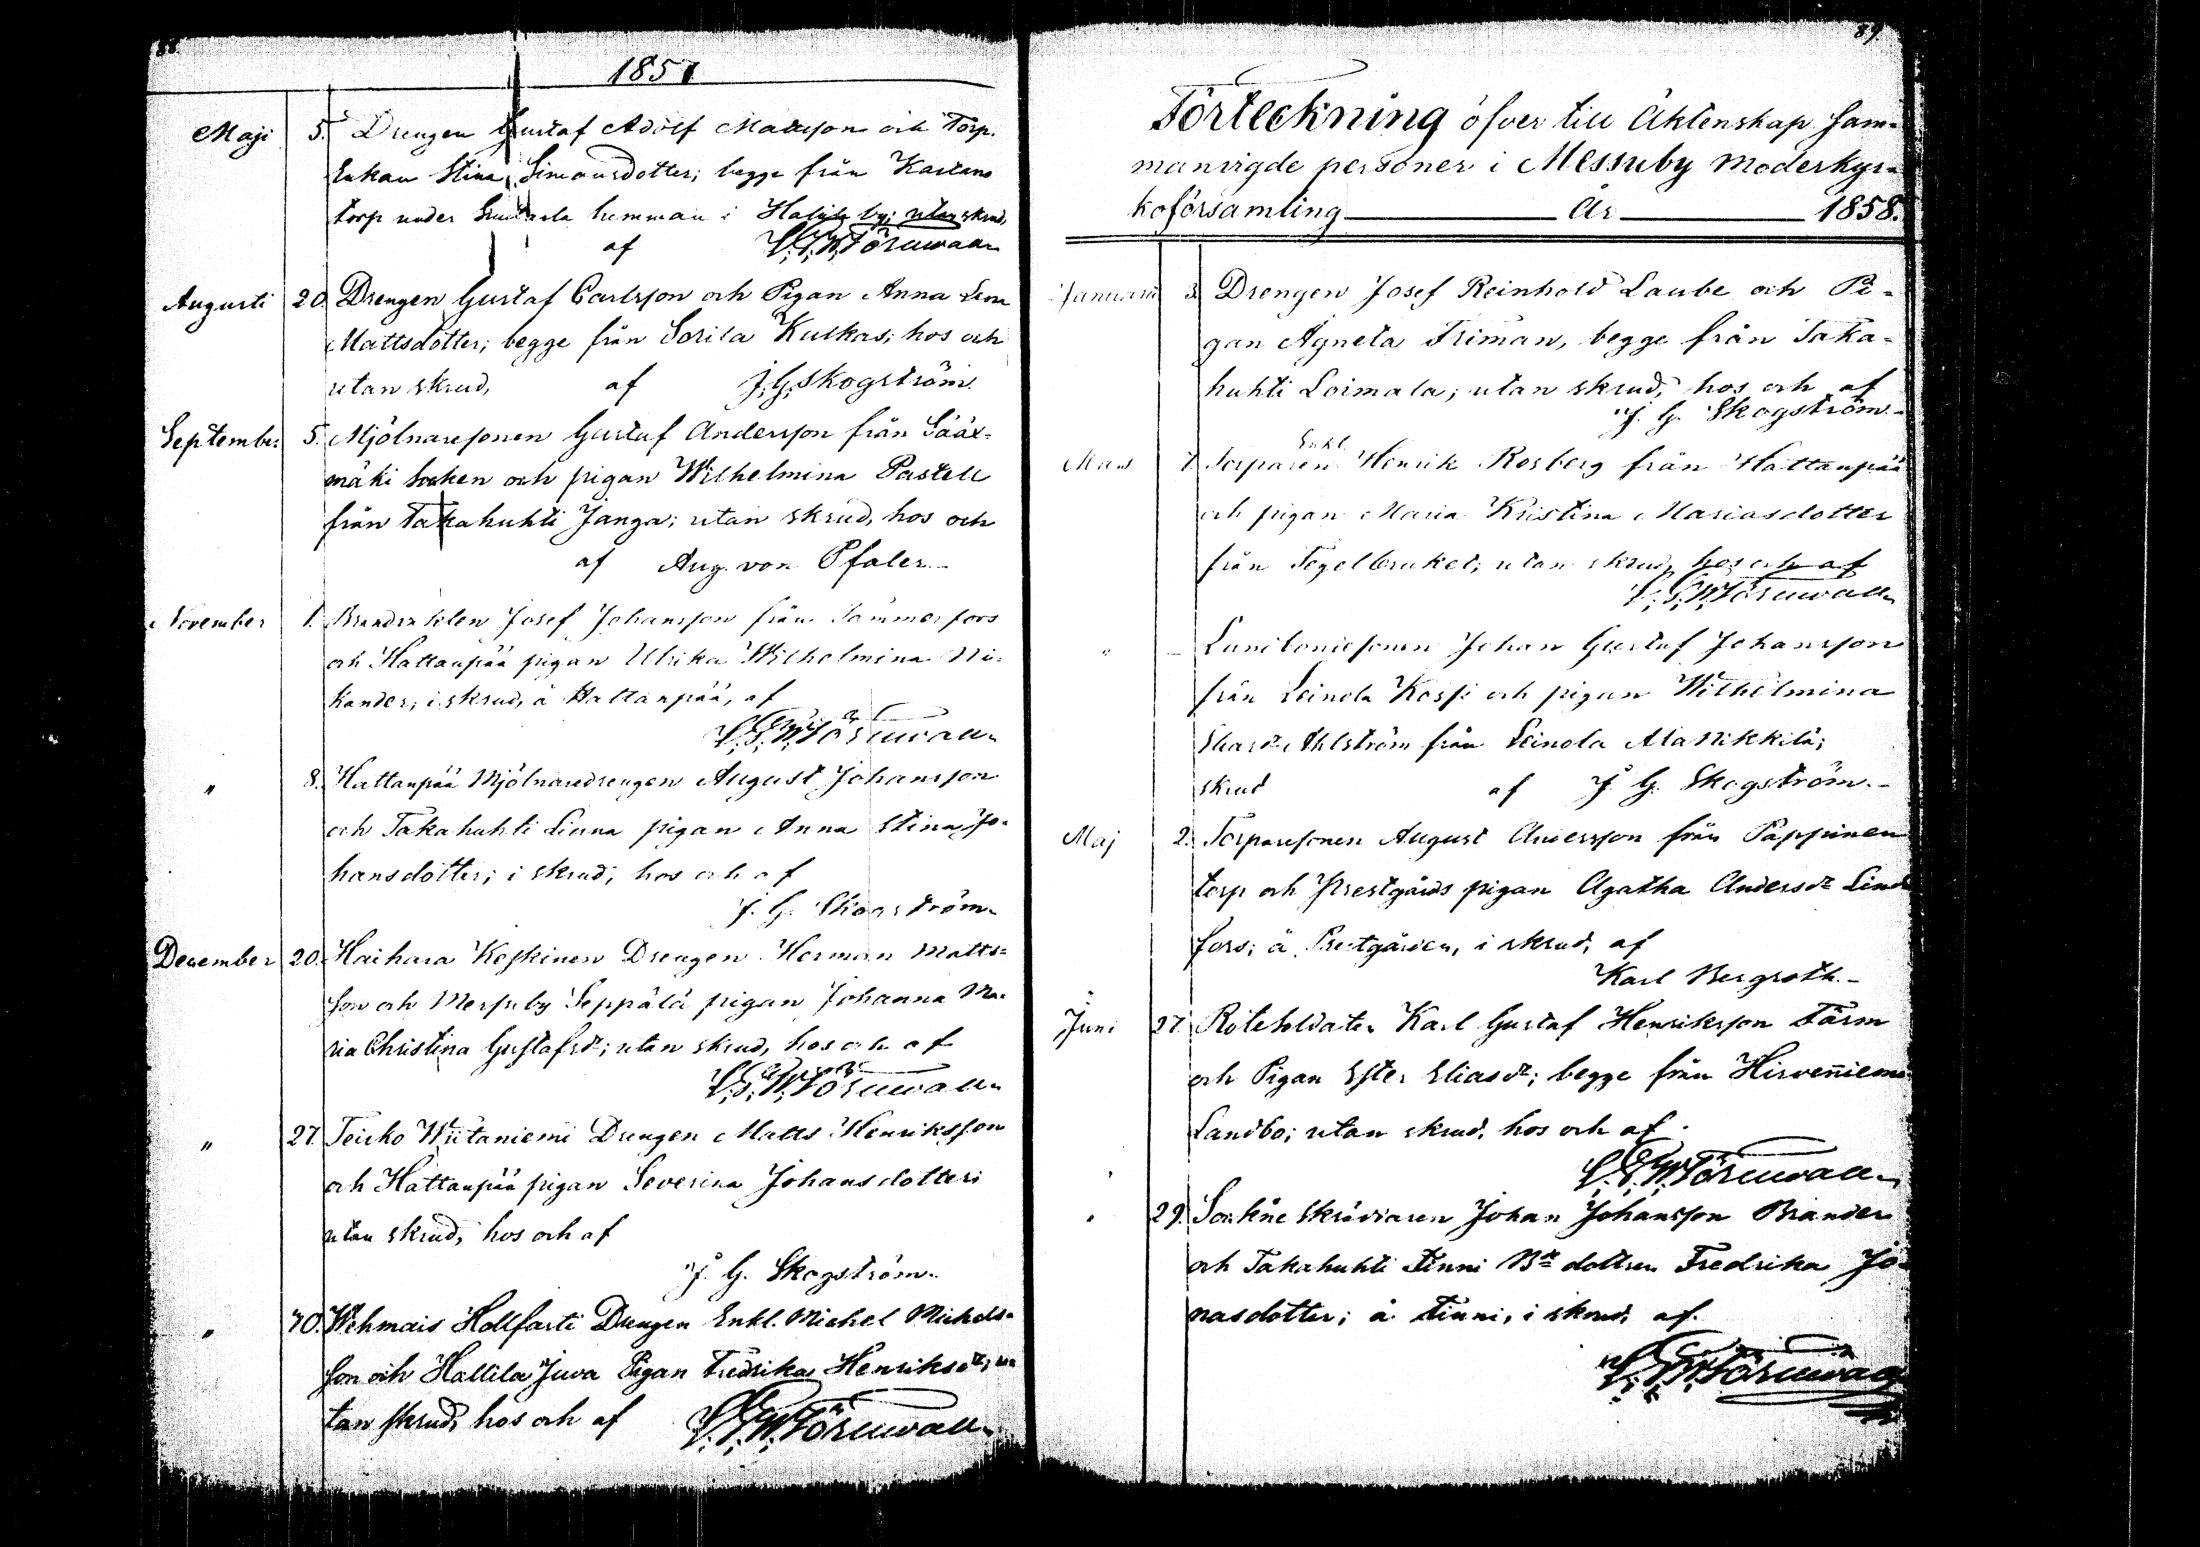 88.
1857
Maji 5. Drengen Gustaf Adolf Mattsson och Torp.
Enkan Stina Simonsdotter; begge från Kartano
torp under hemman i by; utan skrud,
af Törnwall
Augusti 20. Drengen Gustaf Carlsson och Pigan Anna Lena
Mattsdotter; begge från Sorila Kulkas; hos och
utan skrud, af J. G. Skogström.
September 5. Mjölnaresonen Gustaf Andersson från Sääx-
mäki socken och pigan Wilhelmina Pastell
från Takahuhti Janga; utan skrud, hos och
af Aug. von Pfaler.
November 1. Josef Johansson från Tammerfors
och Hattanpää pigan Ulrika Wilhelmina Ni-
kander; i skrud, å Hattanpää, af
Törnwall
" 8. Hattanpää Mjölnaredrengen August Johansson
och Takahuhti Linna pigan Anna Stina Jo-
hansdotter; i skrud; hos och af
J. G. Skogström.
December 20. Haihara Keskinen Drengen Herman Matts-
son och Messuby Seppälä pigan Johanna Ma-
ria Christina Gustafsdr; utan skrud, hos och af
Törnwall
" 27. Teisko Wiitaniemi Drengen Matts Henriksson
och Hattanpää pigan Severina Johansdotter;
utan skrud, hos och af
J. G. Skogström.
" 30. Wehmais Hollfasti Drengen Enkl. Michel Michels-
son och Hallila Juva Pigan Fredrika Henriksdr; u-
tan skrud, hos och af Törnwall
89.
Förteckning öfver till Äktenskap sam-
manvigde personer i Messuby Moderkyr-
koförsamling År 1858.
Januarii 3. Drengen Josef Reinhold Laube och Pi-
gan Agneta Friman, begge från Taka-
huhti Loimala; utan skrud, hos och af
J. G. Skogström.
Enkl.
Mars 7. Torparen Henrik Rosberg från Hattanpää
och pigan Maria Kristina Mariasdotter
från Tegelbruket; utan skrud, hos och af
Törnwall
" - Landbondesonen Johan Gustaf Johansson
från Leinola Kossi och pigan Wilhelmina
Eliasdr Ahlström från Leinola Ala Nikkilä;
skrud af J. G. Skogström.
Maj 2. Torparesonen August Andersson från Pappinen
torp och Prestgårds pigan Agatha Andersdr Lind
fors; å Prestgården, i skrud, af
Karl Bergroth.
Juni 27. Rotesoldaten Karl Gustaf Henriksson Färm
och Pigan Ester Eliasdr; begge från Hirvenniemi
Landbo; utan skrud, hos och af
Törnwall
" 29. Sockne skräddaren Johan Johansson Brander
och Takahuhti Finni Bde dottren Fredrika Jo-
nasdotter; å Finni, i skrud, af
Törnwall